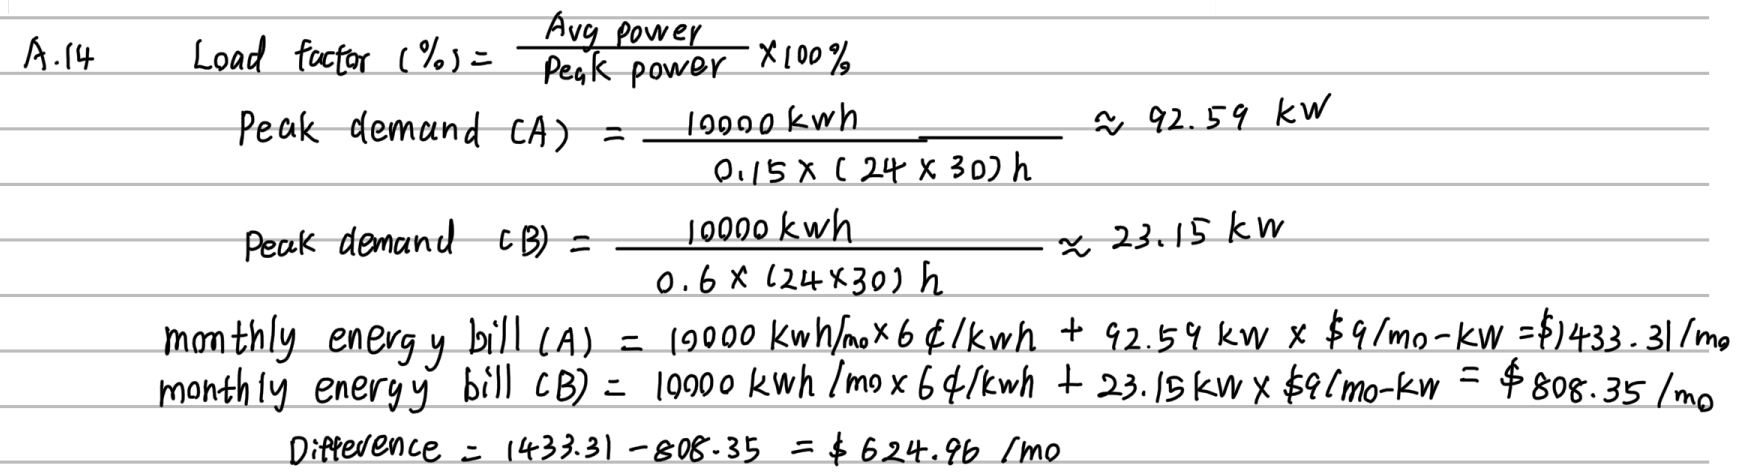 A.14 Load factor (%) = Avg power / Peak power × 100%
Peak demand (A) = 10000 kwh / 0.15 × (24 × 30) h ≈ 92.59 kW
Peak demand (B) = 10000 kwh / 0.6 × (24×30) h ≈ 23.15 kW
monthly energy bill (A) = 10000 kwh/mo × 6 ¢/kwh + 92.59 kW × $9/mo-kW = $1433.31/mo
monthly energy bill (B) = 10000 kwh/mo × 6 ¢/kwh + 23.15 kW × $9/mo-kW = $808.35/mo
Difference = 1433.31 - 808.35 = $624.96 /mo